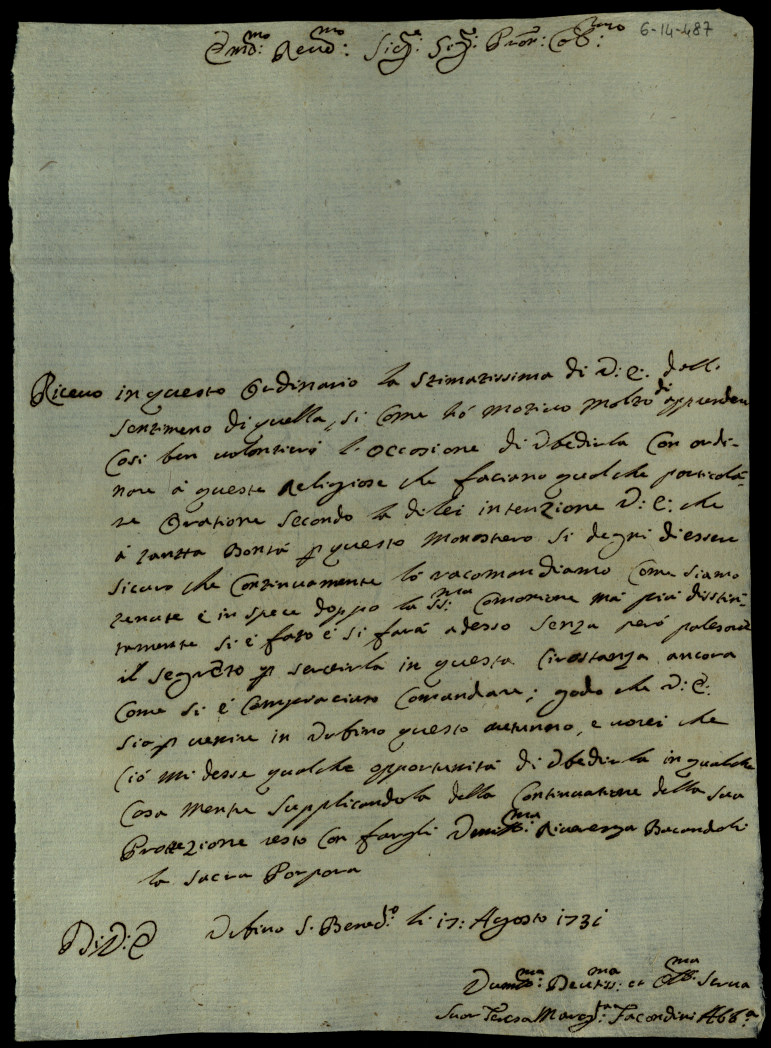 6-14-487
Em̃o: mo Reuo: mo Sig:e Sig: Pron: Co:mo
Riceuo in questo Ordinario la stimatissima di V: E: dall.
sentimeno di quella, si come hò motiuo molto di apprender
Cosi ben uolontieri l'occasione di Vbedirla Con ordi-
nare à queste Religiose che faciano qualche particola-
re Oratione secondo la di lei intenzione V: E: che
à tantta Bontà p questo Monastero si degni di essere
sicuro che Continuamente lo racomandiamo Come siamo
tenute è in spece doppo la SS:ma Comonione mà più distin-
tamente si è fato è si farà adesso senza però palesare
il segreto p seruirla in questa Circostanza ancora
Come si è Compiaciuto Comandare; godo che V: E:
sia p uenire in Vrbino questo autunno, e uorei che
Ciò mi desse qualche opportunità di Vbedirla in qualche
Cosa mentre supplicandola della Continuatione della sua
Protezione resto Con fargli Vmiliss:ma Riuerenza Baciandoli
la sacra Porpora
Di V: E Vrbino S. Bened:o li 17: Agosto 1731
Vumiss:ma Deuotiss:ma et Obb:ma Serua
Suor Teresa Marg:tta Facondini Abb:a